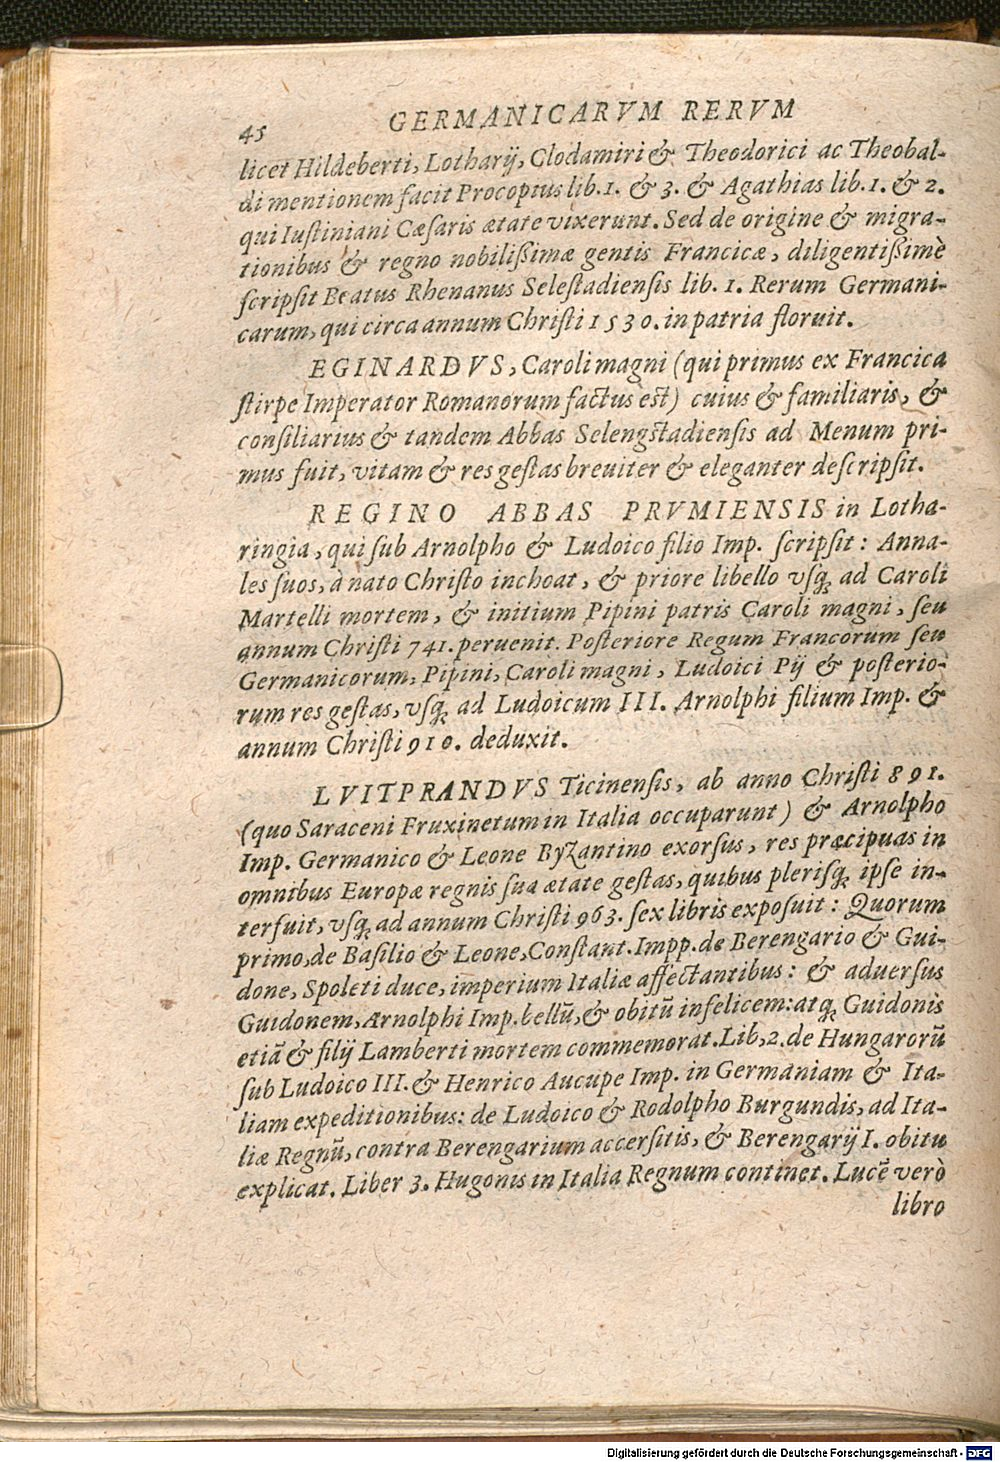 45 GERMANICARVM RERVM
licet Hildeberti, Lotharij, Clodamiri & Theodorici ac Theobal-
di mentionem facit Procopius lib. 1. & 3. & Agathias lib. 1. & 2.
qui Iustiniani Cæsaris ætate vixerunt. Sed de origine & migra-
tionibus & regno nobilißimæ gentis Francicæ, diligentißimè
scripsit Beatus Rhenanus Selestadiensis lib. 1. Rerum Germani-
carum, qui circa annum Christi 1530. in patria floruit.
EGINARDVS, Caroli magni (qui primus ex Francica
stirpe Imperator Romanorum factus est) cuius & familiaris, &
consiliarius & tandem Abbas Selengstadiensis ad Menum pri-
mus fuit, vitam & res gestas breuiter & eleganter descripsit.
REGINO ABBAS PRVMIENSIS in Lotha-
ringia, qui sub Arnolpho & Ludoico filio Imp. scripsit: Anna-
les suos, à nato Christo inchoat, & priore libello vsq; ad Caroli
Martelli mortem, & initium Pipini patris Caroli magni, seu
annum Christi 741. peruenit. Posteriore Regum Francorum seu
Germanicorum, Pipini, Caroli magni, Ludoici Pij & posterio-
rum res gestas, vsq; ad Ludoicum III. Arnolphi filium Imp. &
annum Christi 910. deduxit.
LVITPRANDVS Ticinensis, ab anno Christi 891.
(quo Saraceni Fruxinetum in Italia occuparunt) & Arnolpho
Imp. Germanico & Leone Byzantino exorsus, res præcipuas in
omnibus Europæ regnis sua ætate gestas, quibus plerisq; ipse in-
terfuit, vsq; ad annum Christi 963. sex libris exposuit: Quorum
primo, de Basilio & Leone, Constant. Impp. de Berengario & Gui-
done, Spoleti duce, imperium Italiæ affectantibus: & aduersus
Guidonem, Arnolphi Imp. bellū, & obitū infelicem: atq; Guidonis
etiā & filij Lamberti mortem commemorat. Lib, 2. de Hungarorū
sub Ludoico III. & Henrico Aucupe Imp. in Germaniam & Ita-
liam expeditionibus: de Ludoico & Rodolpho Burgundis, ad Ita-
liæ Regnū, contra Berengarium accersitis, & Berengarij I. obitu
explicat. Liber 3. Hugonis in Italia Regnum continet. Lucē verò
libro
Digitalisierung gefördert durch die Deutsche Forschungsgemeinschaft - DFG